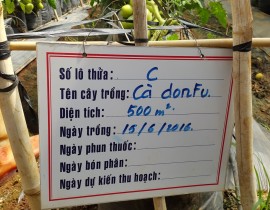 Số lô thửa: C
Tên cây trồng: Cà donFu.
Diện tích: 500 m².
Ngày trồng: 15/6/2016.
Ngày phun thuốc:
Ngày bón phân:
Ngày dự kiến thu hoạch: